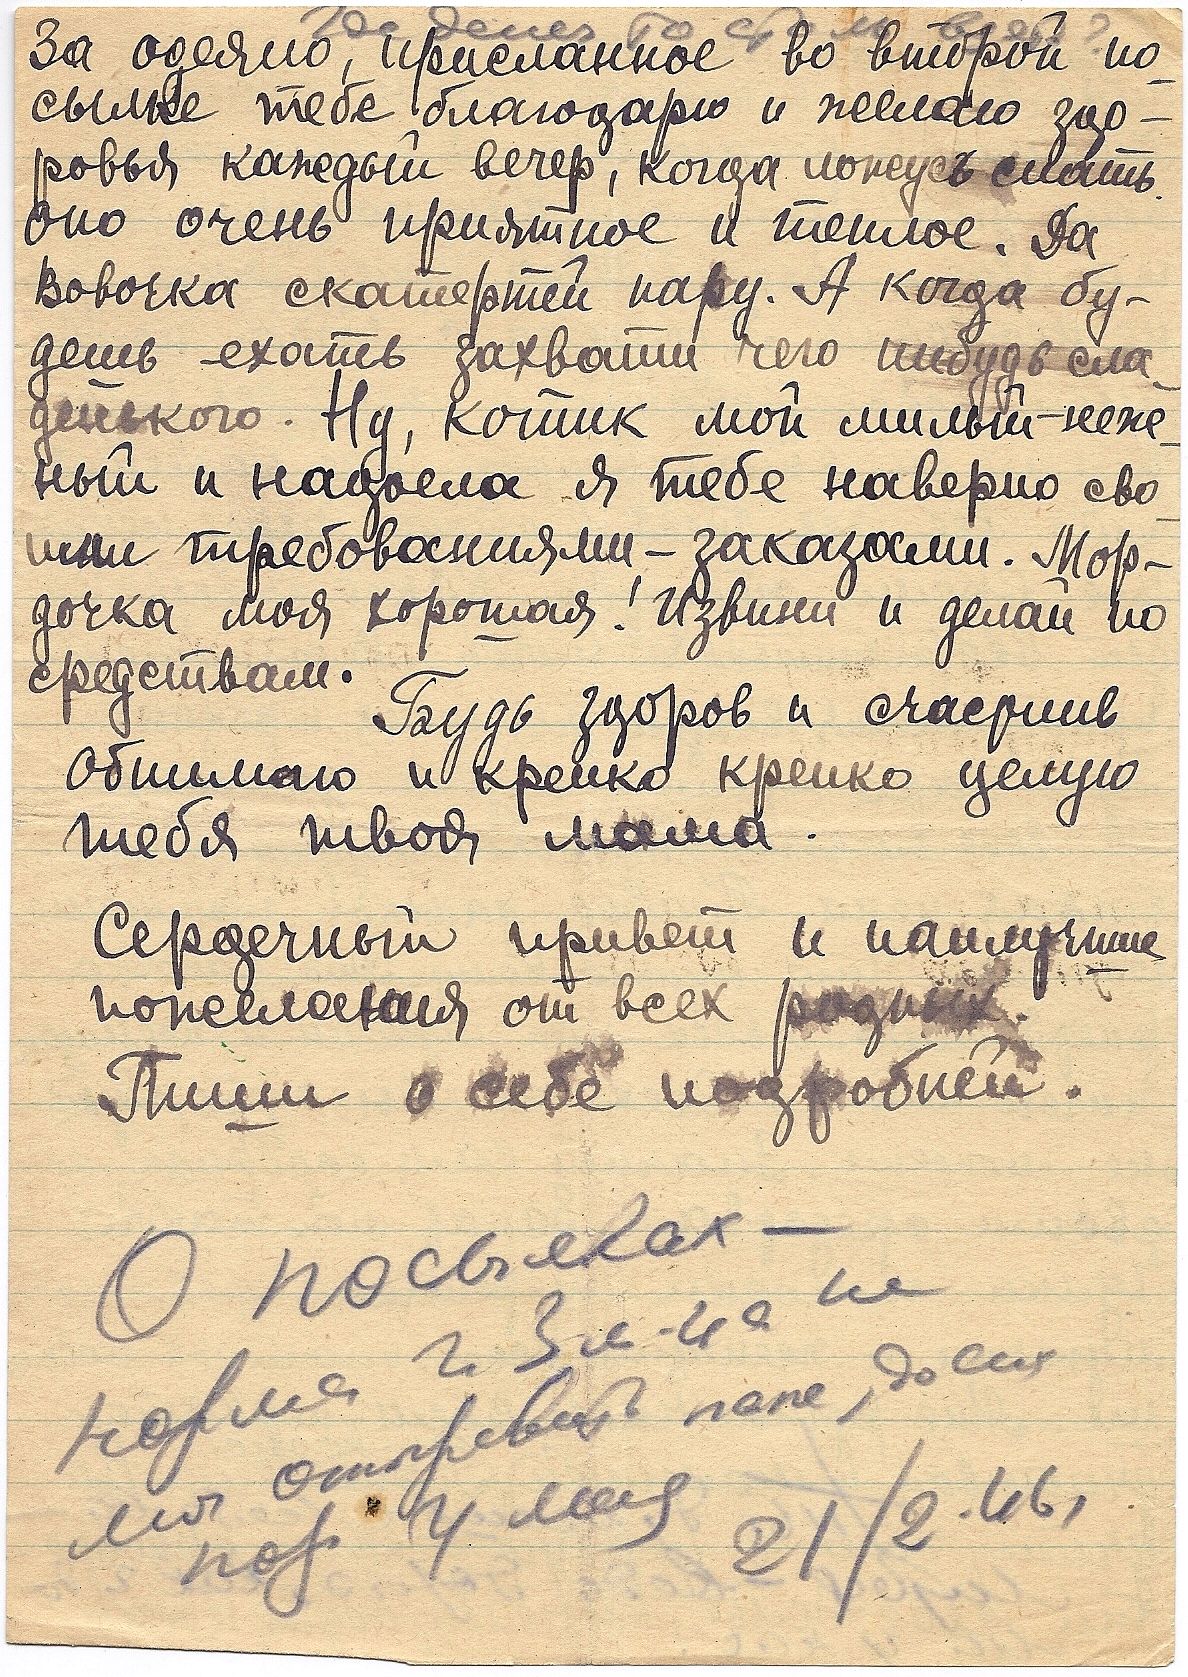 Где денег то
За одеяло, присланное во второй по
сылке тебе благодарю и желаю здо-
ровья каждый вечер, когда ложусь спать.
оно очень приятное и теплое. Да
Вовочка скатертей пару. А когда бу-
дешь ехать захвати чего нибудь сла
денького. Ну, котик мой милый-неж
ный и надоела я тебе наверно сво
ими требованиями-заказами. Мор-
дочка моя хорошая! Извини и делай по
средствам.
Будь здоров и счастлив
Обнимаю и крепко крепко целую
тебя твоя мама.
Сердечный привет и наилучшие
пожелания от всех родных.
Пиши о себе подробней.
О посылках —
норма
папе, до сих
пор у меня
21/2.46.